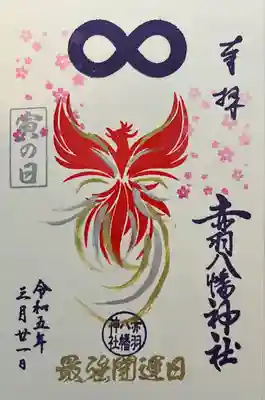 奉拝
赤羽八幡神社
寅の日
赤羽
八幡
神社
令和五年
三月廿一日
最強開運日